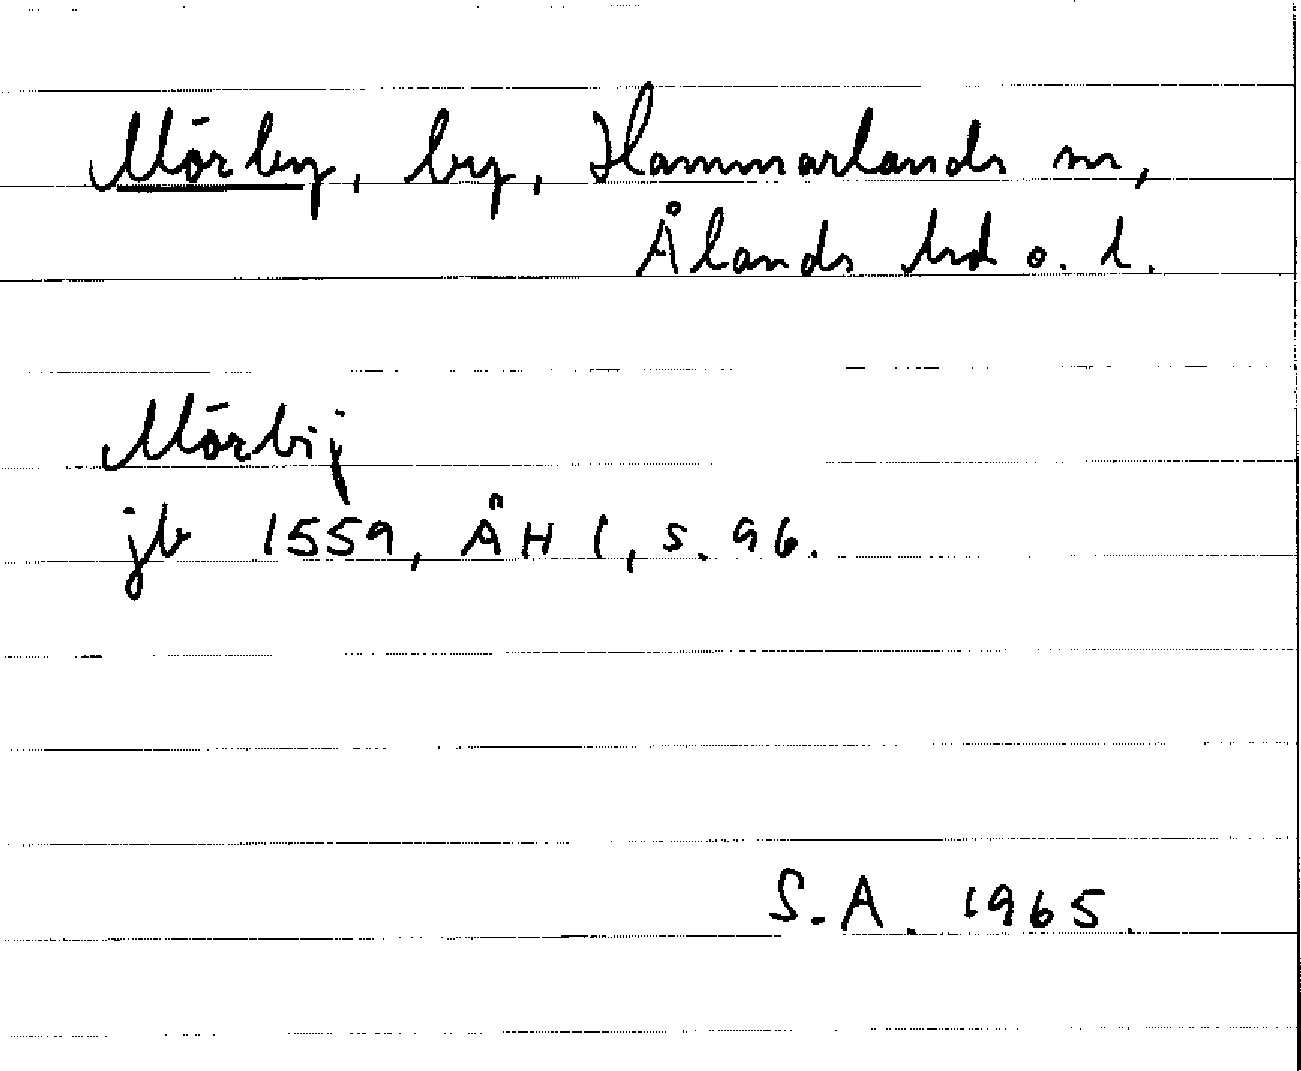 Mörby, by, Hammarlands sn,
Ålands hd o. l.
Mörbij
jb 1559, ÅH 1, s. 96.
S.A. 1965.